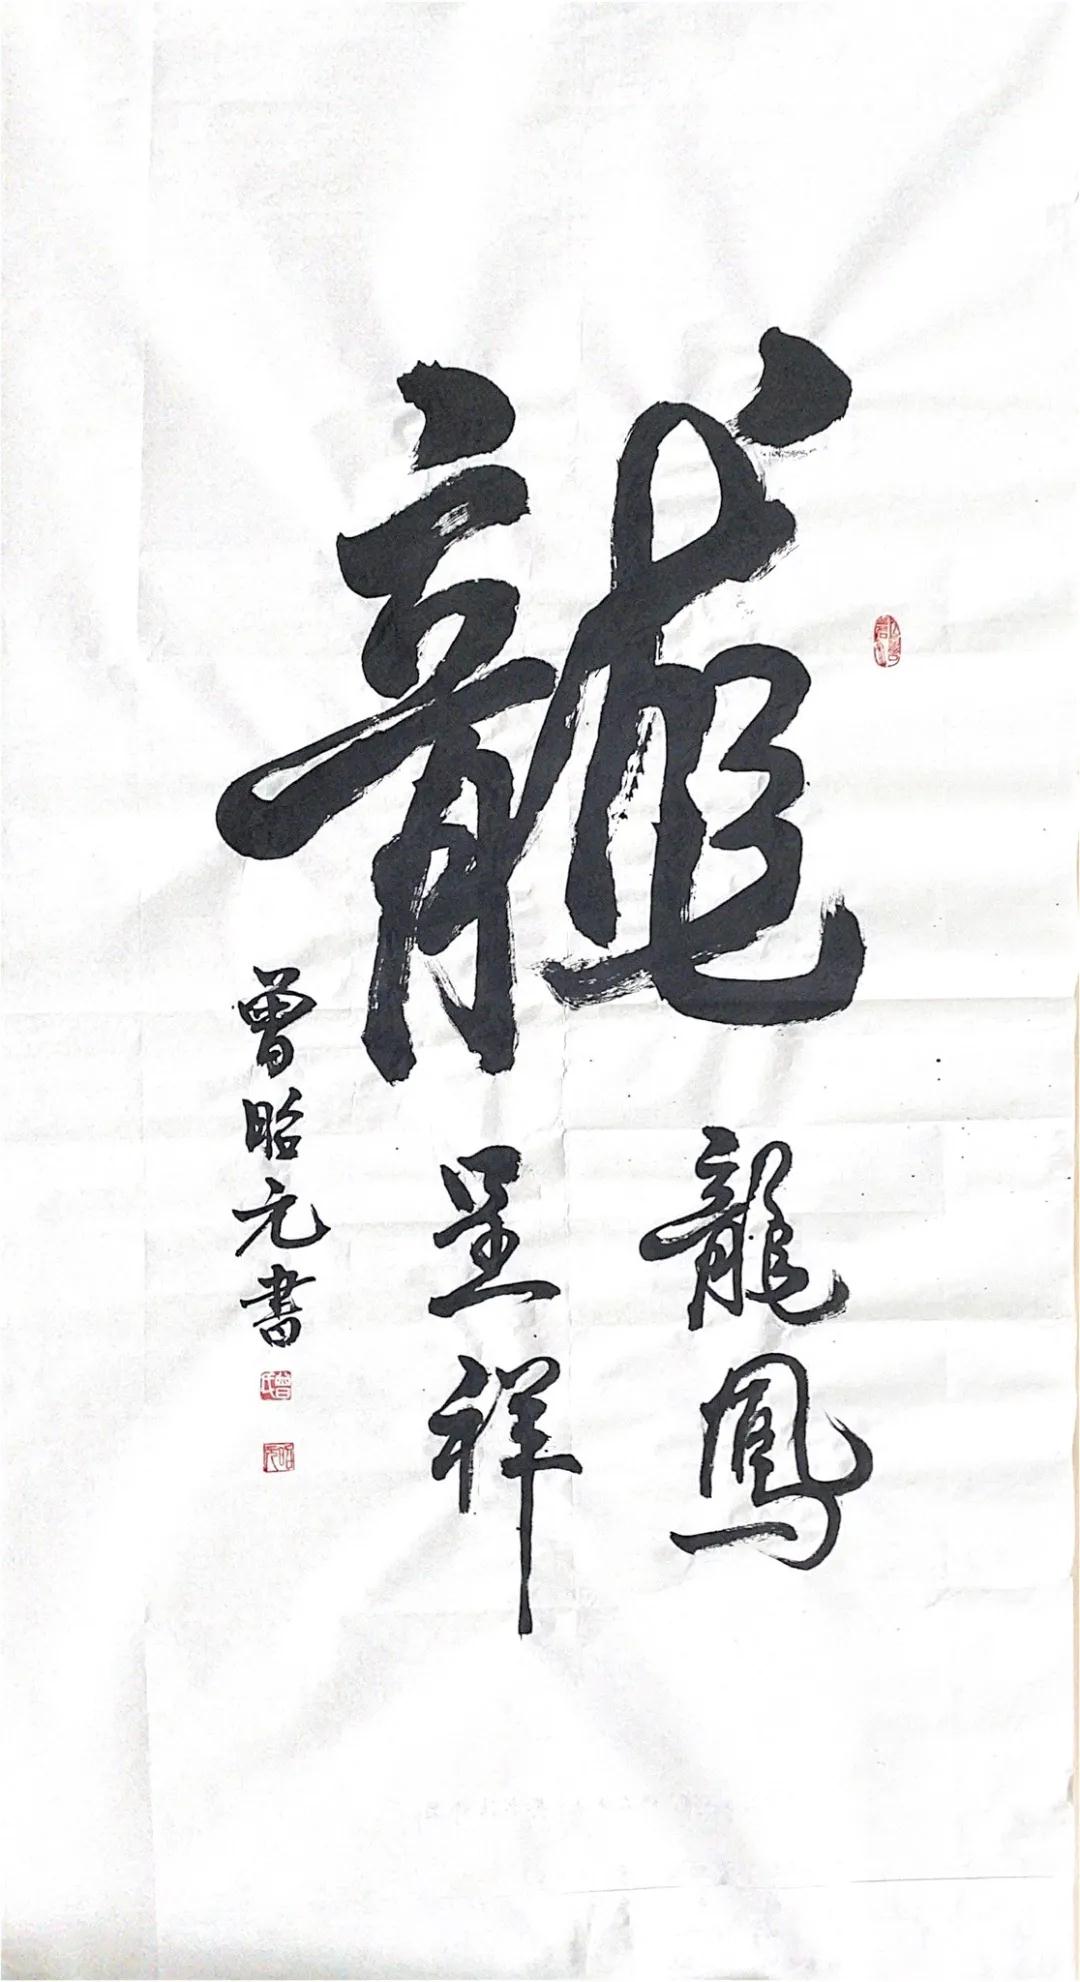 龍
龍鳳
呈祥
曾昭元書
曾氏